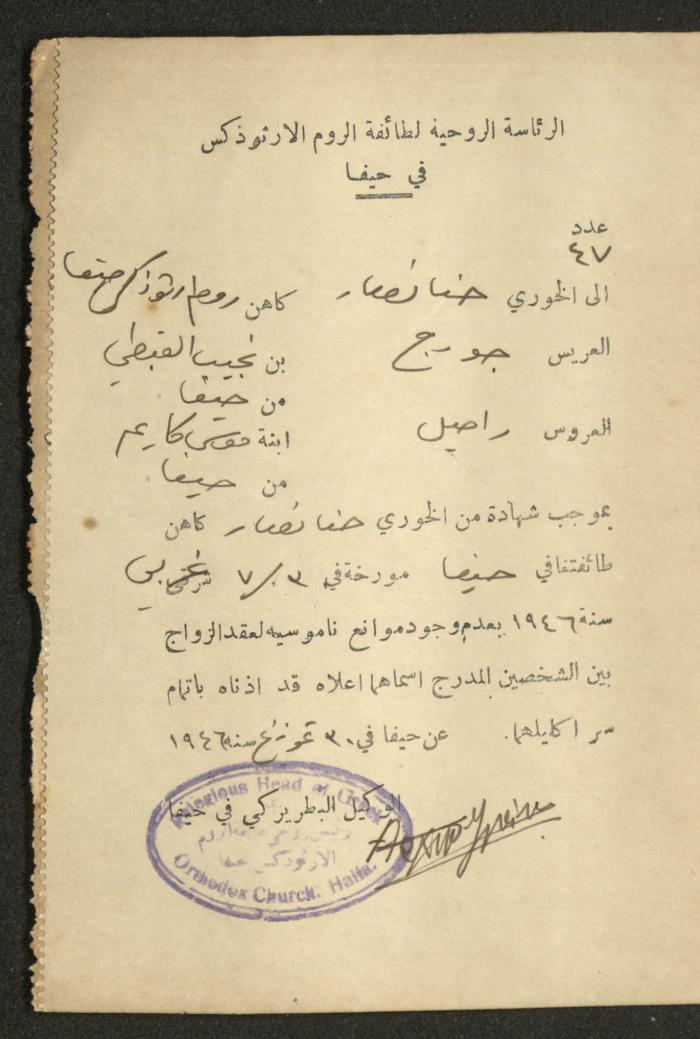 الرئاسة الروحية لطائفة الروم الارثوذكس
في حيفا
عدد
٤٧
الى الخوري حنا نصار كاهن روم ارثوذكس حيفا
العريس جورج بن نجيب القبطي
من حيفا
العروس راحيل ابنة موسى كاريم
من حيفا
بموجب شهادة من الخوري حنا نصار كاهن
طائفتنا في حيفا مورخة في ٣٠/٧ غربي
سنة ١٩٤٦ بعدم وجود موانع ناموسيه لعقد الزواج
بين الشخصين المدرج اسماهما اعلاه قد اذناه باتمام
سر اكليلهما. عن حيفا في ٣٠ تموز غ سنة ١٩٤٦
الوكيل البطريركي في حيفا
Religious Head of Greek
الارثوذكس حيفا
Orthodox Church. Haifa.